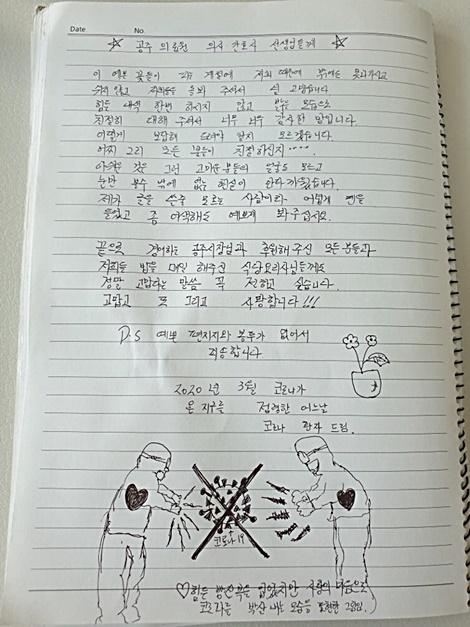 Date No.
☆ 공주의료원 의사 간호사 선생님들께 ☆
이 예쁜 꽃들이 피는 계절에 저희 때문에 밖에도 못나가시고
쉬지 않고 저희들을 돌봐 주셔서 넘 고맙습니다
힘든 내색 한번 하시지 않고 밝은 모습으로
친절히 대해 주셔서 너무 너무 감사한 맘입니다.
어떻게 보답해 드려야 할지 모르겠습니다.
어찌 그리 모든 분들이 친절하신지····
아쉬운 것은 그런 고마운 분들의 얼굴도 모르고
눈만 볼수 밖에 없는 현실이 안타까웠습니다.
제가 글을 쓸줄 모르는 사람이라 어렵게 펜을
들었고 좀 어색해도 예쁘게 봐주십시요.
끝으로 경애하는 공주시장님과 후원해 주신 모든분들과
저희들 밥을 매일 해주신 식당요리사님들께도
정말 고맙다는 말씀 꼭 전하고 싶습니다.
고맙고 또 그리고 사랑합니다!!!
P.S 예쁜 편지지와 봉투가 없어서
죄송합니다
2020년 3월 코로나가
온 지구를 점령한 어느날
코로나 환자 드림.
코로나19
♡힘든 방진복을 입었지만 사랑의 마음으로
코로나를 박살 내는 모습을 표현한 그림임.